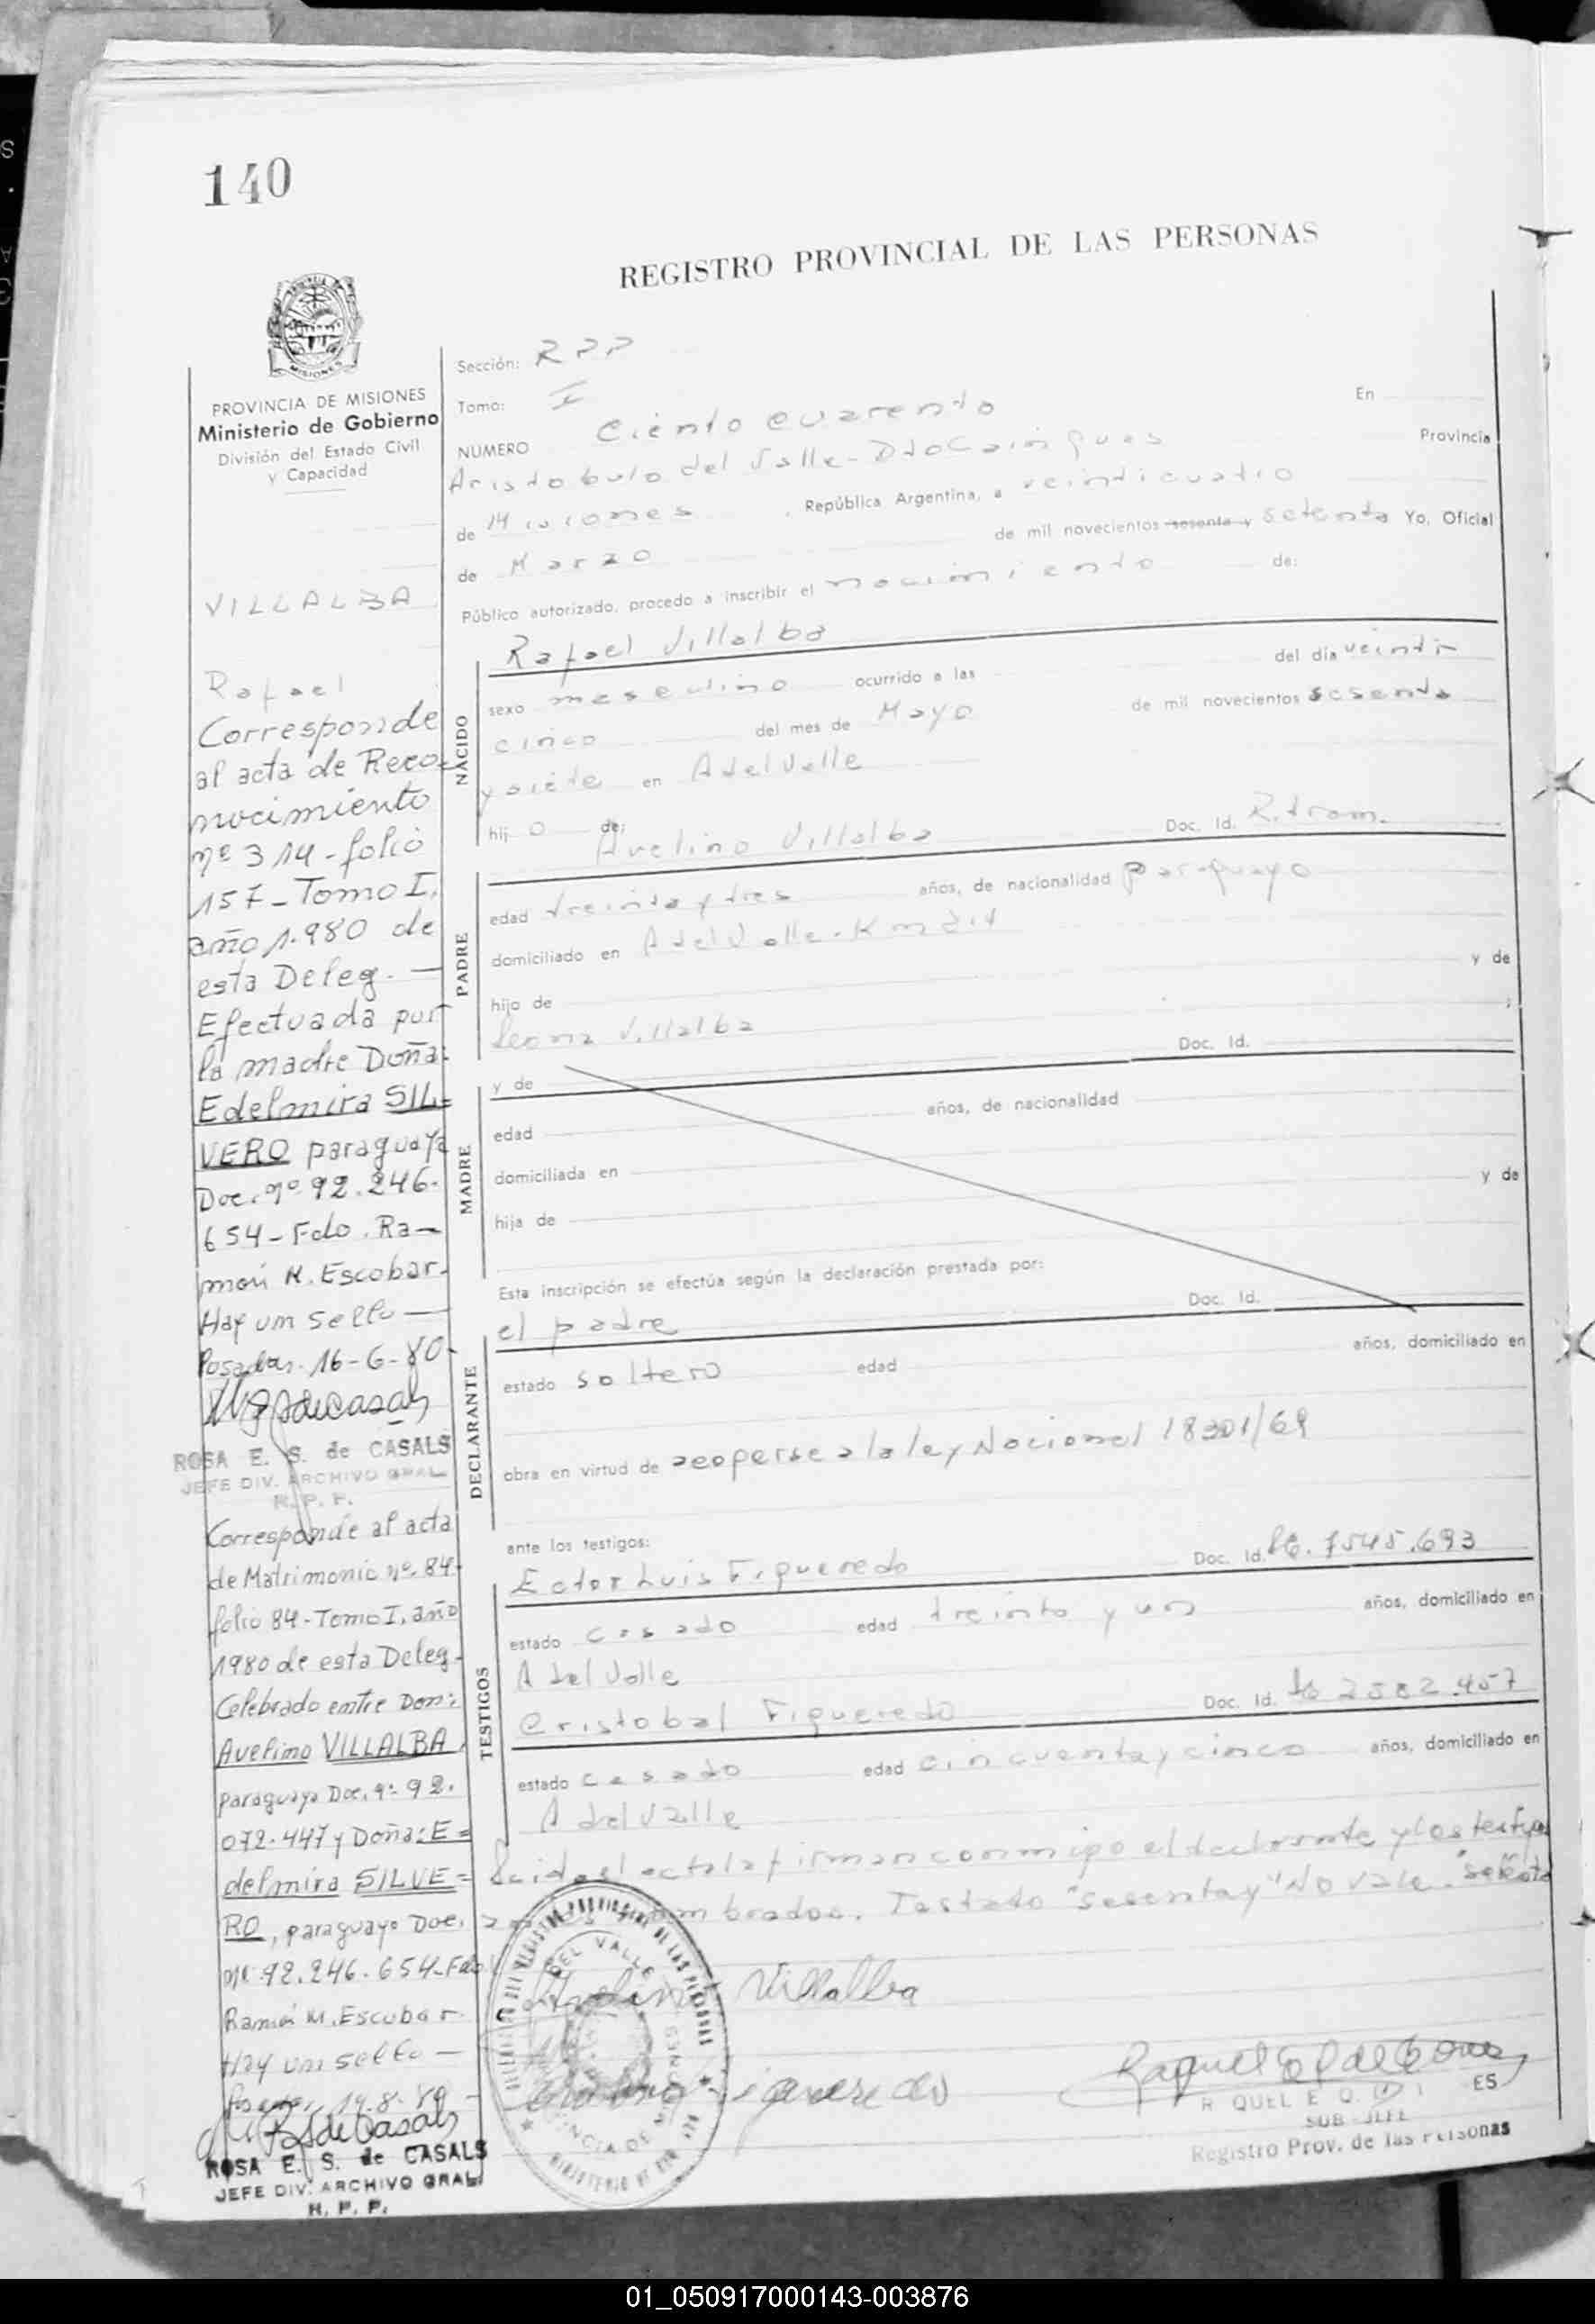 140
REGISTRO PROVINCIAL DE LAS PERSONAS
PROVINCIA DE MISIONES
Ministerio de Gobierno
División del Estado Civil
y Capacidad
VILLALBA
Rafael
Corresponde
al acta de Reco-
nocimiento
nº 314 - folio
157 - Tomo I,
año 1.980 de
esta Deleg. —
Efectuada por
la madre Doña:
Edelmira SIL=
VERO paraguaya
Doc. nº 92.246.
654 - Fdo. Ra-
món M. Escobar.
Hay un sello —
Posadas. 16-6-80-
ROSA E. S. de CASALS
JEFE DIV. ARCHIVO GRAL.
R. P. P.
Corresponde al acta
de Matrimonio nº. 84-
folio 84 - Tomo I, año
1980 de esta Deleg.
Celebrado entre Don:
Avelino VILLALBA,
paraguayo Doc. nº 92.
072.447 y Doña: E=
delmira SILVE=
RO, paraguaya Doc.
nº 92.246.654 - Fdo
Ramón M. Escobar
Hay un sello —
ROSA E. S. de CASALS
JEFE DIV. ARCHIVO GRAL.
R. P. P.
Sección: RPP
Tomo: I En
NUMERO Ciento cuarenta
Aristobulo del Valle - Dto Cainguas Provincia
de Misiones , República Argentina, a veinticuatro
de Marzo de mil novecientos sesenta y setenta Yo, Oficial
Público autorizado, procedo a inscribir el nacimiento de:
NACIDO
Rafael Villalba
sexo masculino ocurrido a las del día veinti
cinco del mes de Mayo de mil novecientos sesenta
y siete en A del Valle
hij o de:
PADRE
Avelino Villalba Doc. Id. R. tram.
edad treinta y tres años, de nacionalidad paraguayo
domiciliado en A del Valle - Km
hijo de y de
Leona Villalba ;
MADRE
y de Doc. Id.
edad años, de nacionalidad
domiciliada en
hija de y de
Esta inscripción se efectúa según la declaración prestada por:
DECLARANTE
el padre Doc. Id.
estado soltero edad años, domiciliado en
obra en virtud de acoperse a la ley Nacional 18301/69
ante los testigos:
TESTIGOS
Ector Luis Figueredo Doc. Id. 7545.693
estado casado edad treinta y un años, domiciliado en
A del Valle
Cristobal Figueredo Doc. Id. 2582.457
estado casado edad cincuenta y cinco años, domiciliado en
A del Valle
Leida el acta la firman conmigo el declarante y los testigos
nombrados. Testado "sesenta y" No vale.
Avelino Villalba
Figueredo
SUB-JEFE
Registro Prov. de las Personas
01_050917000143-003876